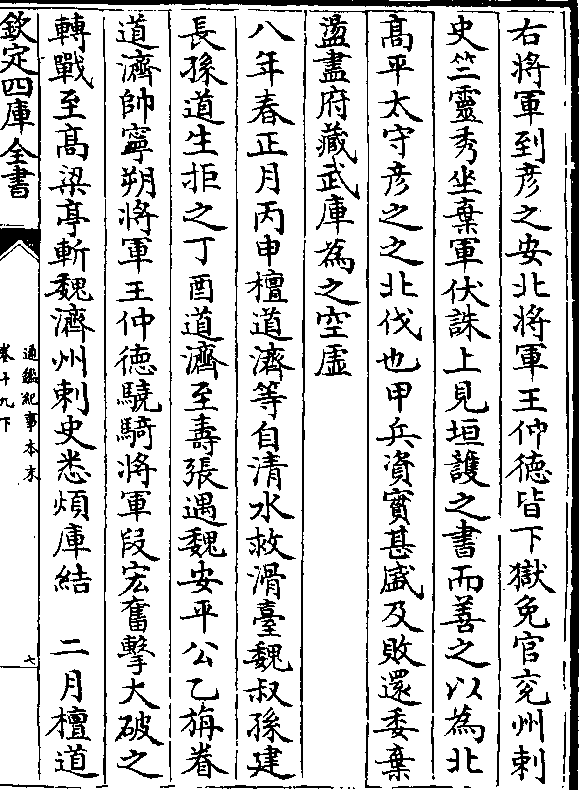 右將軍到彦之安北將軍王仲徳皆下獄免官兖州刺
史竺靈秀坐棄軍伏誅上見垣䕶之書而善之以為北
髙平太守彦之之北伐也甲兵資實甚盛及敗還委棄
盪盡府藏武庫為之空虚
八年春正月丙申檀道濟等自清水救滑臺魏叔孫建
長孫道生拒之丁酉道濟至壽張遇魏安平公乙旃眷
道濟帥寧朔將軍王仲徳驍騎將軍段宏奮擊大破之
轉戰至髙梁亭斬魏濟州刺史悉煩庫結　二月檀道
欽定四庫全書
通鑑紀事本末
卷十九下
七